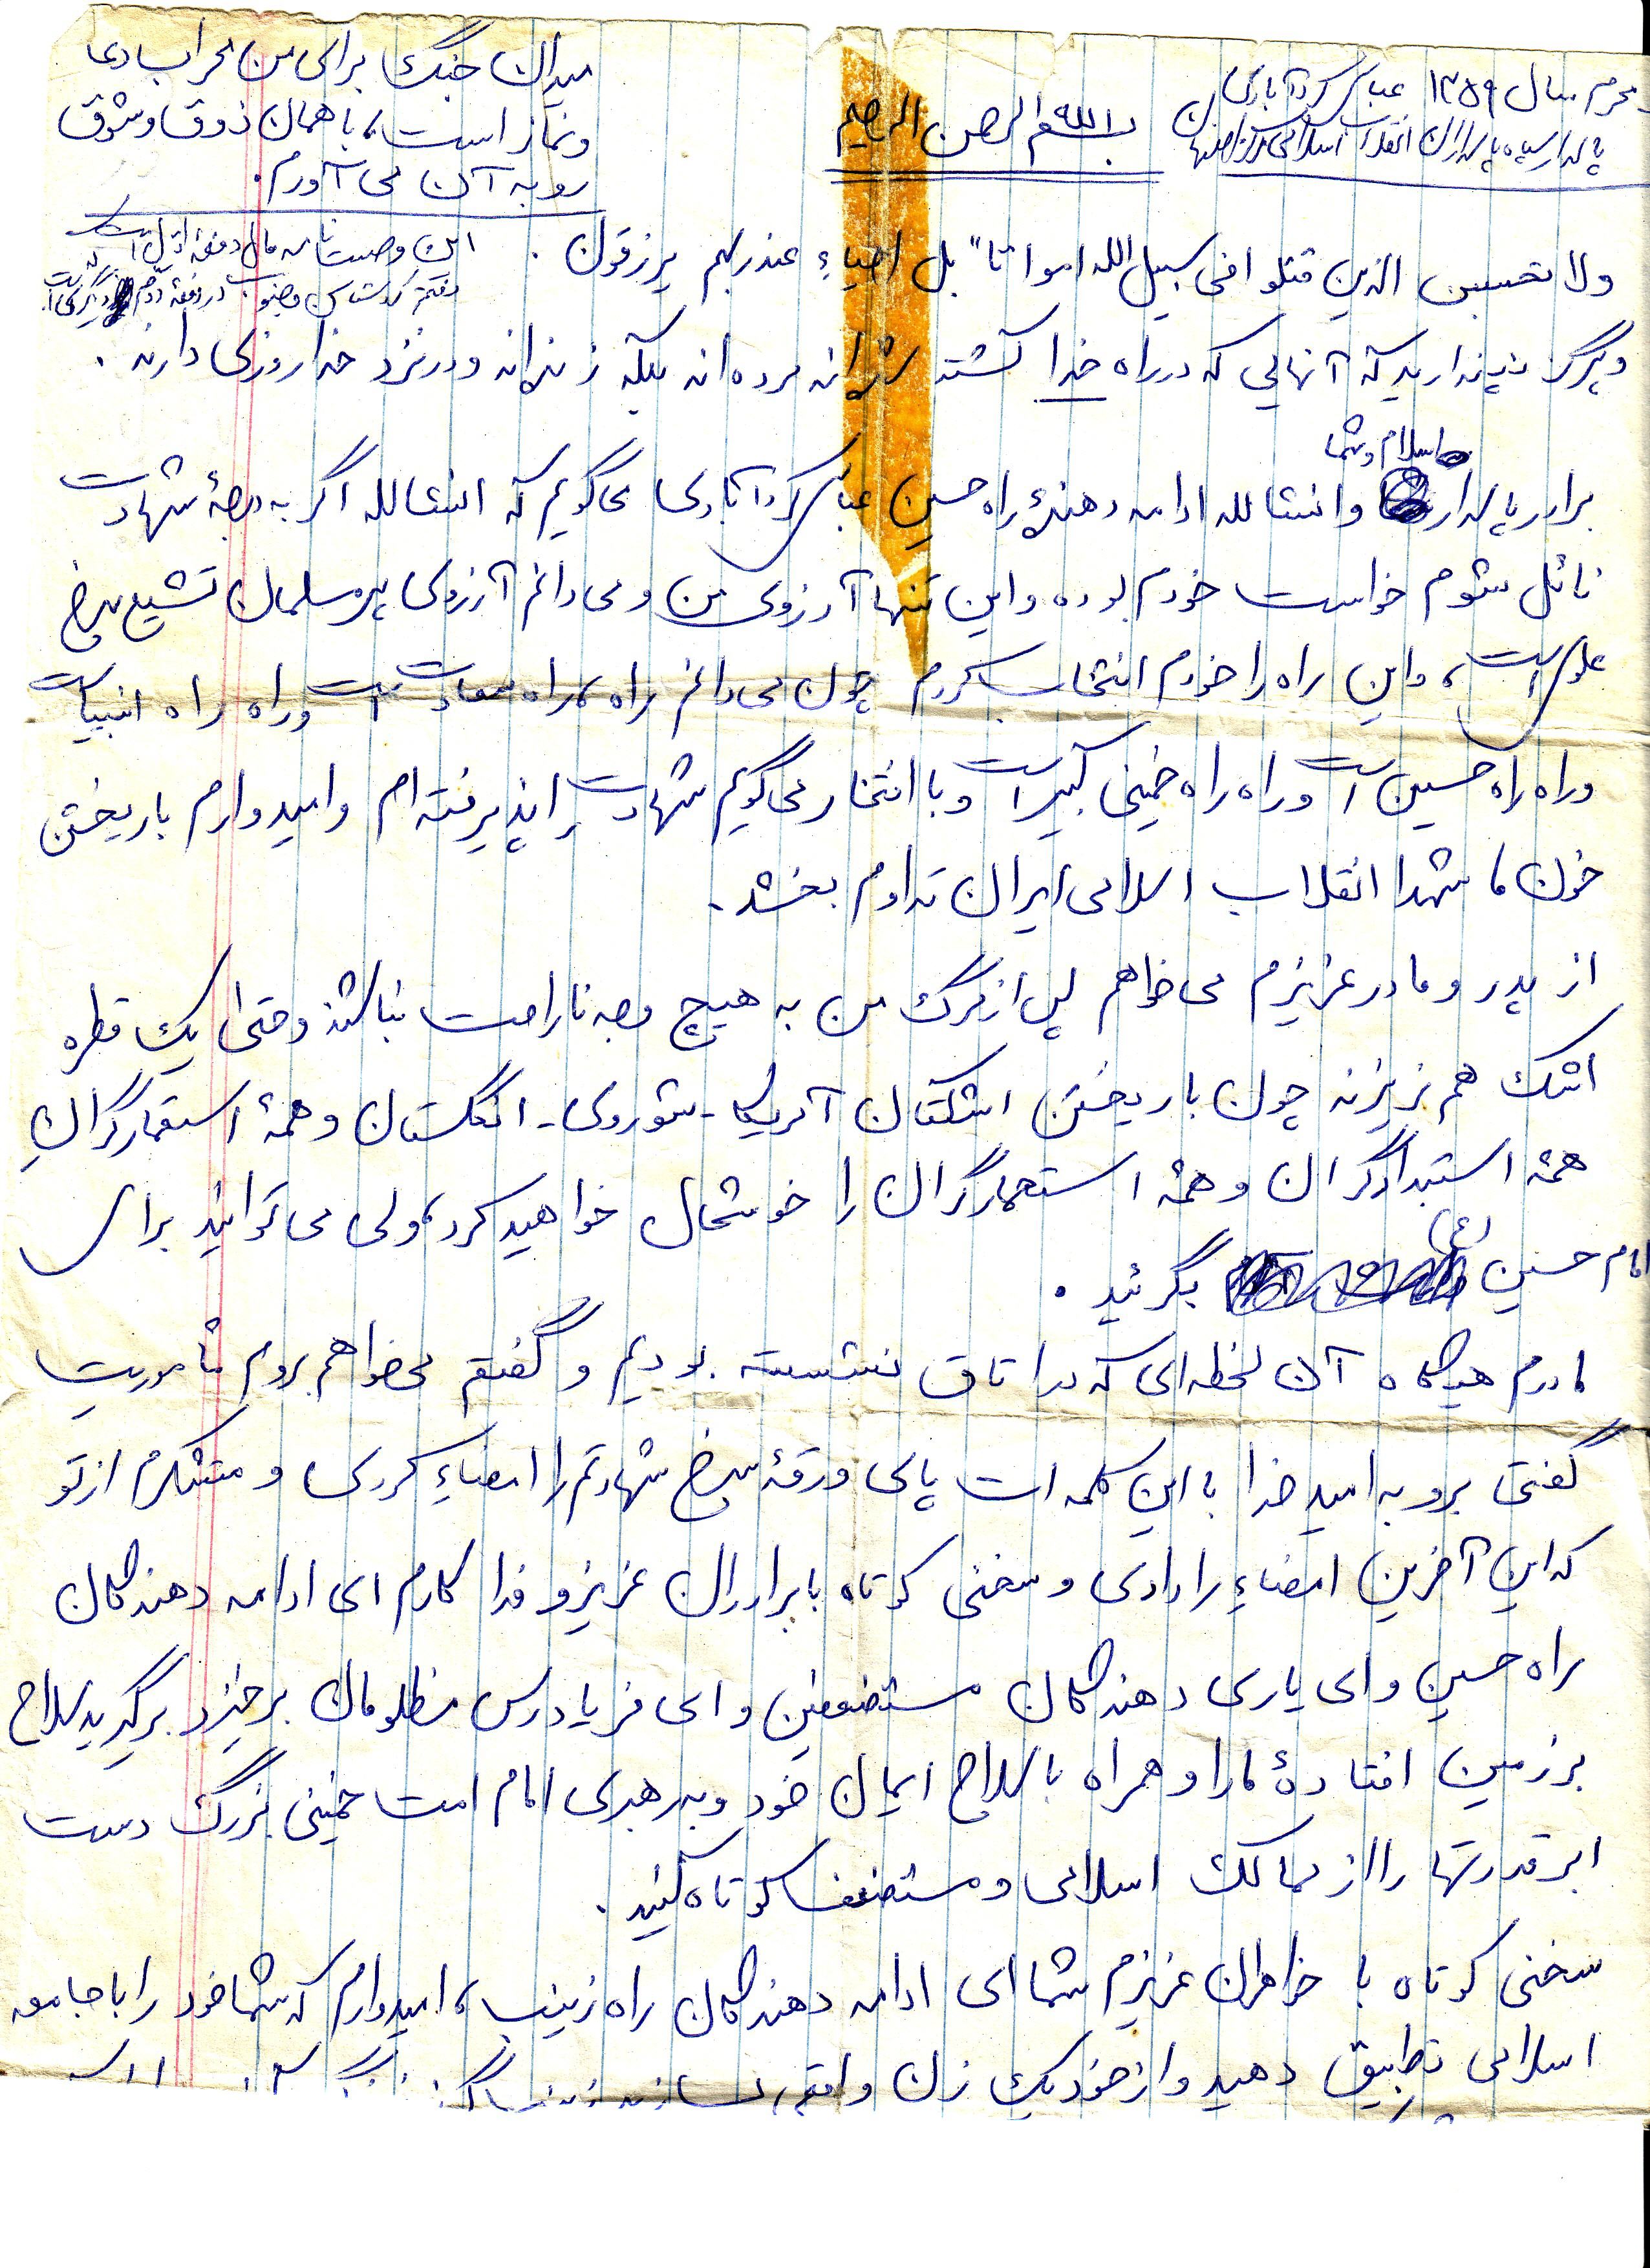 محرم سال ۱۳۵۹ عباس کردآبادی
پاسدار سپاه پاسداران انقلاب اسلامی اصفهان
بسم الله الرحمن الرحیم
میدان جنگ برای من محراب دعا
و نماز است، با همان ذوق و شوق
رو به آن می آورم.
این وصیت نامه مال دفعه اول است که
رفتم کردستان در دفعه دوم
ولا تحسبن الذین قتلوا فی سبیل الله امواتا" بل احیاءِ عند ربهم یرزقون .
و هرگز نپندارید که آنهایی که در راه خدا کشته شده اند مرده اند بلکه زنده اند و در نزد خدا روزی دارند .
اسلام و شما
برادر پاسدار و انشالله ادامه دهندهٔ راه حسین عباس کردآبادی می گویم که انشالله اگر به درجهٔ شهادت
نائل شوم خواست خودم بوده و این تنها آرزوی من و می دانم آرزوی هر مسلمان تشیع سرخ
علوی است، و این راه را خودم انتخاب کردم چون می دانم راه، راه سعادت است و راه راه انبیاست
و راه راه حسین است و راه راه خمینی کبیر است و با افتخار می گویم شهادت را پذیرفته ام و امیدوارم با ریختن
خون ما شهدا انقلاب اسلامی ایران تداوم بخشد .
از پدر و مادر عزیزم می خواهم پس از مرگ من به هیچ وجه ناراحت نباشند و حتی یک قطره
اشک هم نریزند چون با ریختن اشکتان آمریکا - شوروی - انگلستان و همهٔ استثمارگرانِ
همهٔ استبدادگران و همهٔ استعمارگران را خوشحال خواهید کرد، ولی می توانید برای
امام حسین (ع) بگرئید .
مادرم هیچگاه آن لحظه ای که در اتاق نشسته بودیم و گفتم میخواهم بروم مأموریت
گفتی برو به امید خدا با این کلمه ات پای ورقهٔ سرخ شهادتم را امضاءِ کردی و متشکرم از تو
که این آخرین امضاءِ را دادی و سخنی کوتاه با برادران عزیز و فداکارم ای ادامه دهندگان
راه حسین و ای یاری دهندگان مستضعفین و ای فریادرس مظلومان برخیزد برگیرید سلاح
بر زمین افتادهٔ ما را و همراه با سلاح ایمان خود و به رهبری امام امت خمینی بزرگ دست
ابرقدرتها را از ممالک اسلامی و مستضعف کوتاه کنید .
سخنی کوتاه با خواهران عزیزم شما ای ادامه دهندگان راه زینب، امیدوارم که شما خود را با جامعه
اسلامی تطبیق دهید و از خود یک زن واقعی بسازید